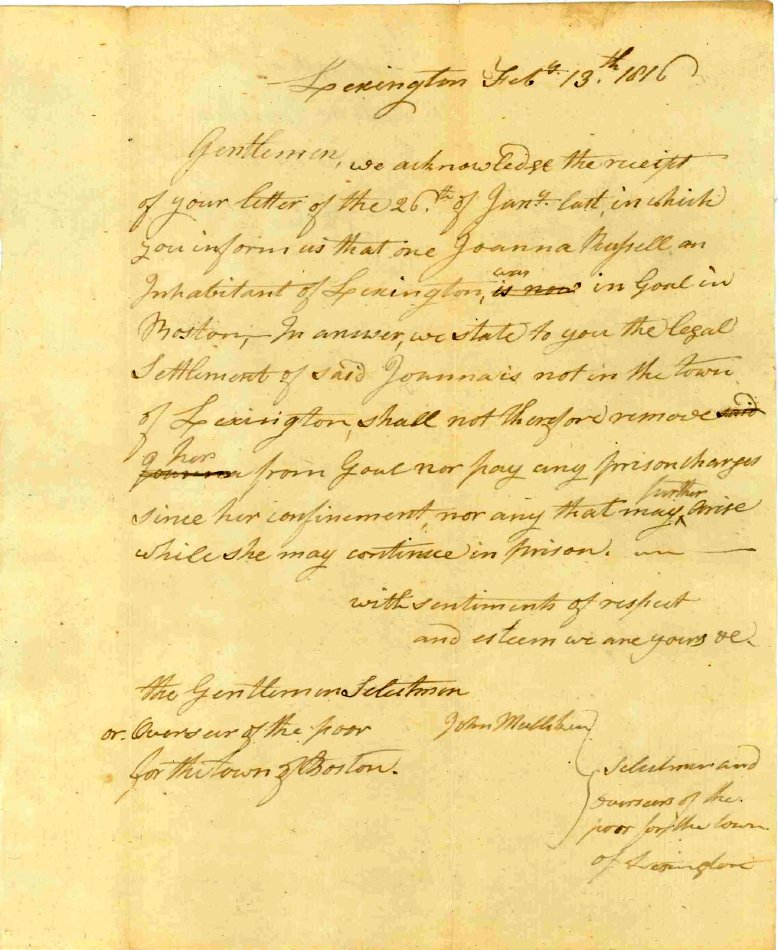 Lexington Feby. 13.th 1816
Gentlemen, we acknowledge the receipt
of your letter of the 26.th of Jany. last, in which
you inform us that one Joanna Russell an
Inhabitant of Lexington, is now was in Goal in
Boston, — In answer, we state to you the legal
Settlement of said Joanna is not in the town
of Lexington, shall not therefore remove said
Joanna her from Goal nor pay any prison charges
since her confinement, nor any that may further Arise
while she may continue in prison. —
with sentiments of respect
and esteem we are yours &c.
the Gentlemen Selectmen
or Overseer of the poor
for the town of Boston.
John Mulliken
Selectmen and
overseers of the
poor for the town
of Lexington